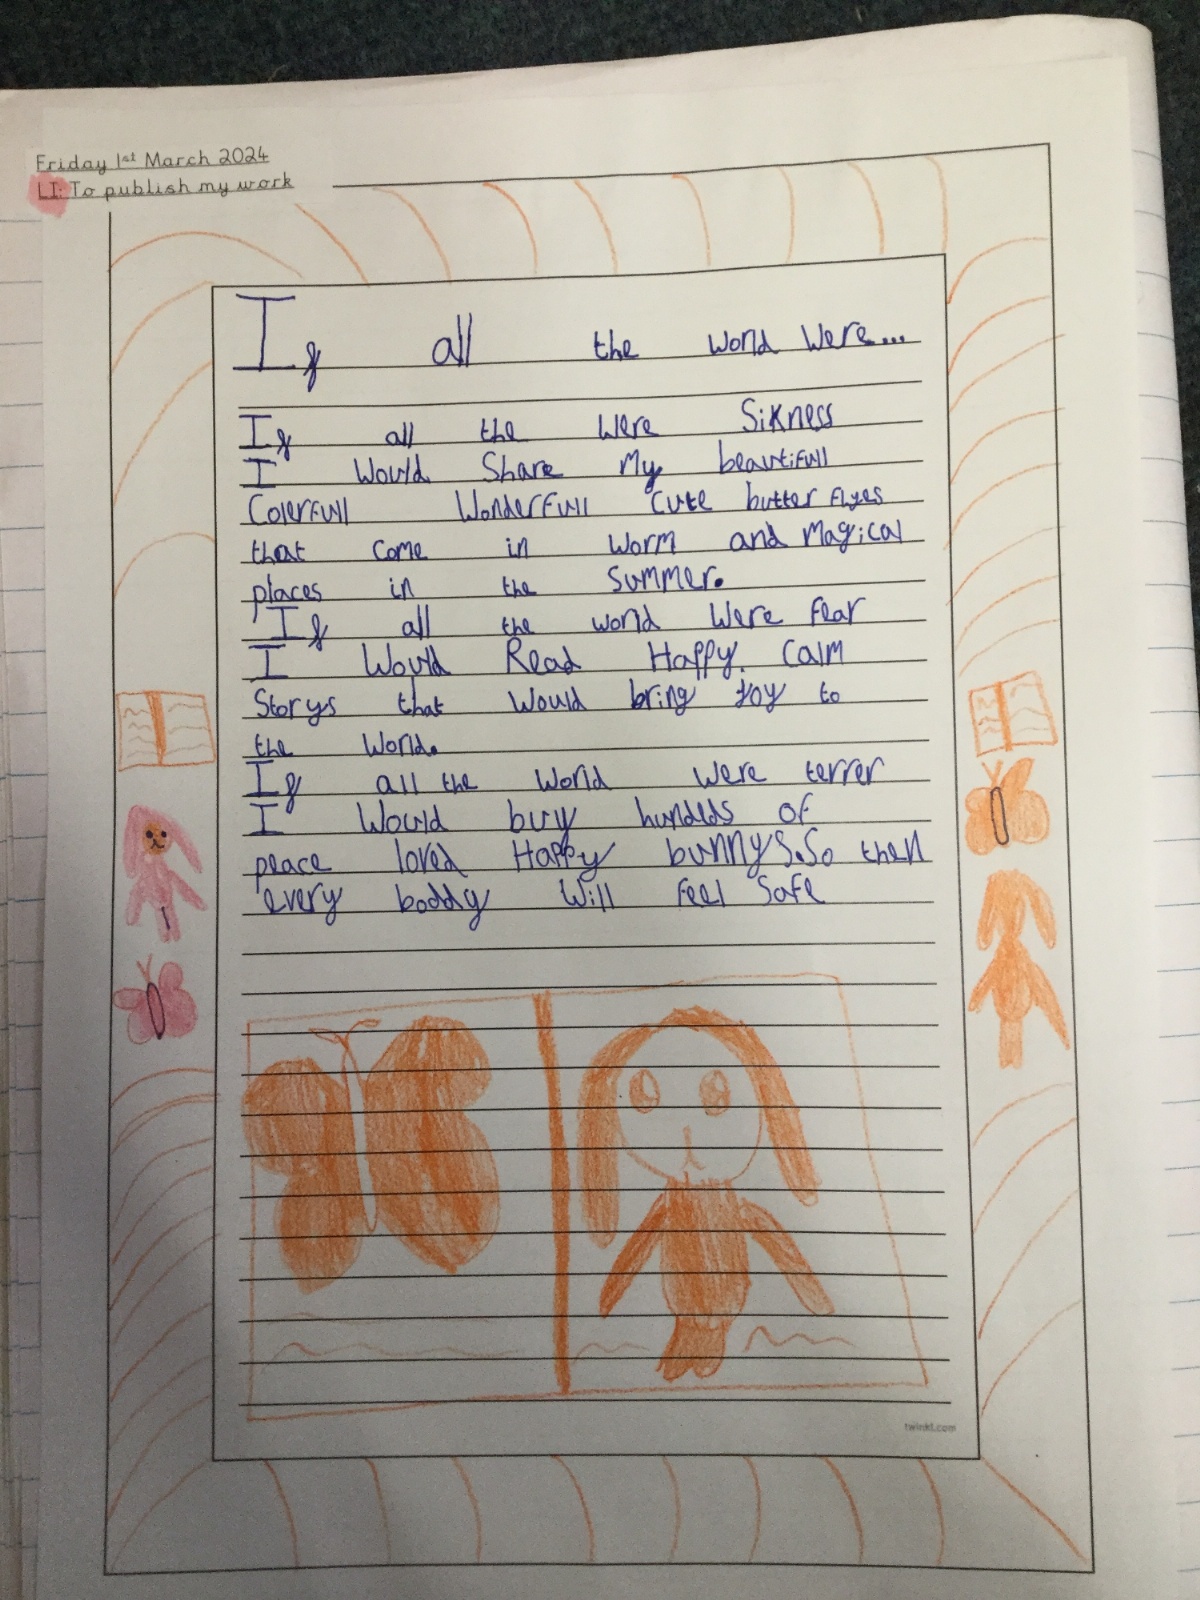 Friday 1st March 2024
LI: To publish my work
If all the world were...
If all the were Sikness
I would Share my beautifull
Colerfull wonderfull cute butter flyes
that come in worm and magical
places in the summer.
If all the world were fear
I would Read Happy. Calm
Storys that would bring joy to
the world.
If all the world were terrer
I would buy hundlds of
peace loved Happy bunnys.So then
every boddy will feel safe
twinkl.com